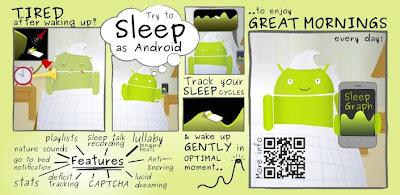 TIRED
after waking up?
Try to
Sleep
as Android
..to enjoy
GREAT MORNINGS
every day!
Track your
SLEEP CYCLES
& wake up
GENTLY in
OPTIMAL
moment..
Sleep
Graph
More info
playlists
Sleep talk
recording
lullaby
binaural
beats
nature sounds
go to bed
notification
Features
Anti-
Snoring
stats
deficit
tracking
CAPTCHA
lucid
dreaming